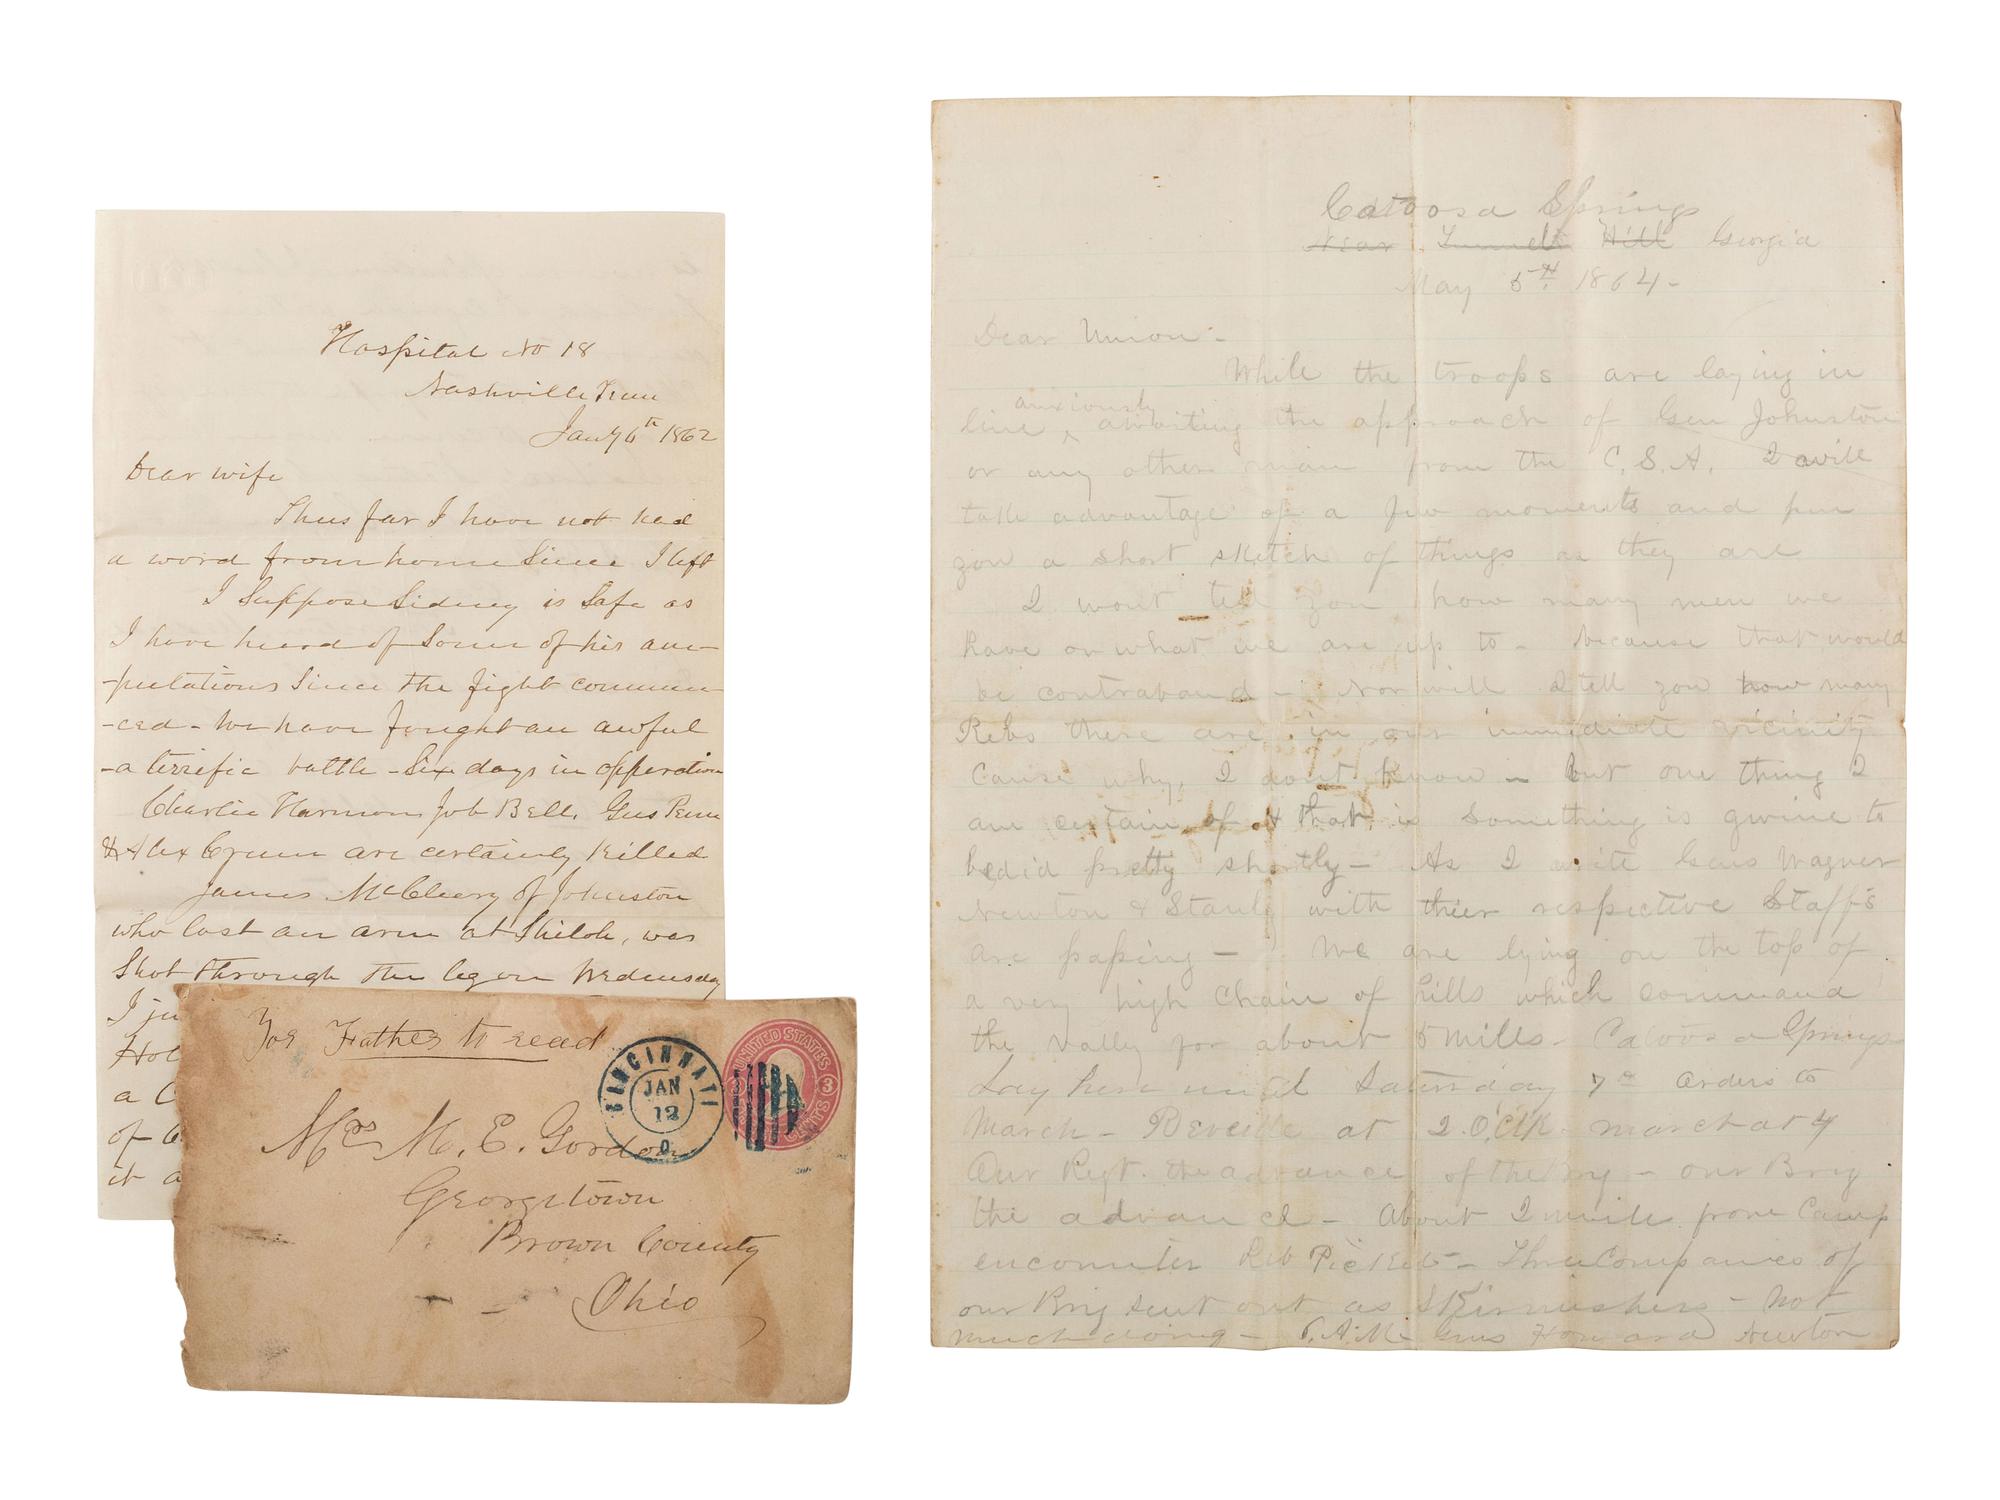 Hospital No 18
Nashville Tenn
Jany 6th 1862
Dear wife
Thus far I have not had
a word from home Since I left
I Suppose Sidney is Safe as
I have heard of Some of his am-
-putations Since the fight commen-
-ced - We have fought an awful
-a terrific battle - Six days in opperation
Charlie Harmon Job Bell, Gus Penn
& Alex Crum are certainly Killed
James McCleery of Johnston
who lost an arm at Shiloh, was
Shot through the leg on Wednesday
I ju
Hol
a C
of
it a
For Father to read
CINCINNATI
JAN
12
O.
UNITED STATES
3
3
CENTS
Mrs M. E. Gordon
Georgetown
Brown County
Ohio
Catoosa Springs
Near Tunnell Hill Georgia
May 5th 1864 -
Dear Union -
While the troops are laying in
anxiously
line ^ awaiting the approach of Gen Johnston
or any other man from the C.S.A. I will
take advantage of a few moments and pen
you a short sketch of things as they are
I wont tell you how many men we
have or what we are up to - because that would
be contraband - Nor will I tell you how many
Rebs there are in our immediate vicinity
Cause why, I dont know - but one thing I
am certain of & that is Something is gwine to
be did pretty shortly - As I write Gens Wagner
Newton & Stanly with thier respective Staffs
are passing - We are lying on the top of
a very high chain of hills which command
the Vally for about 5 Mills - Catoosa Springs
Lay here until Saturday 7th Orders to
March - Reveille at 2 O,Clk - march at 4
Our Regt. the advance of the Brig - our Brig
the advance - About 2 mile from Camp
encounter Reb Pickets - Three Companies of
our Brig sent out as Skirmishers - Not
much doing - Gens Howard Newton